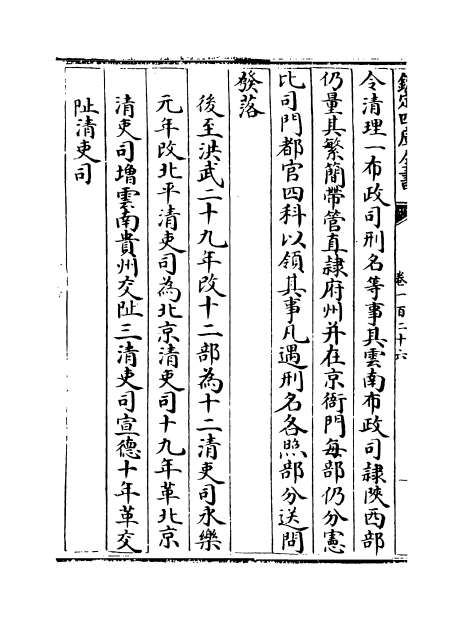 欽定四庫全書
卷一百二十六
令清理一布政司刑名等事其雲南布政司隷陜西部
仍量其繁簡帶管直隷府州并在京衙門每部仍分憲
比司門都官四科以領其事凡遇刑名各照部分送問
發落
後至洪武二十九年改十二部為十二清吏司永樂
元年改北平清吏司為北京清吏司十九年革北京
清吏司增雲南貴州交阯三清吏司宣德十年革交
阯清吏司